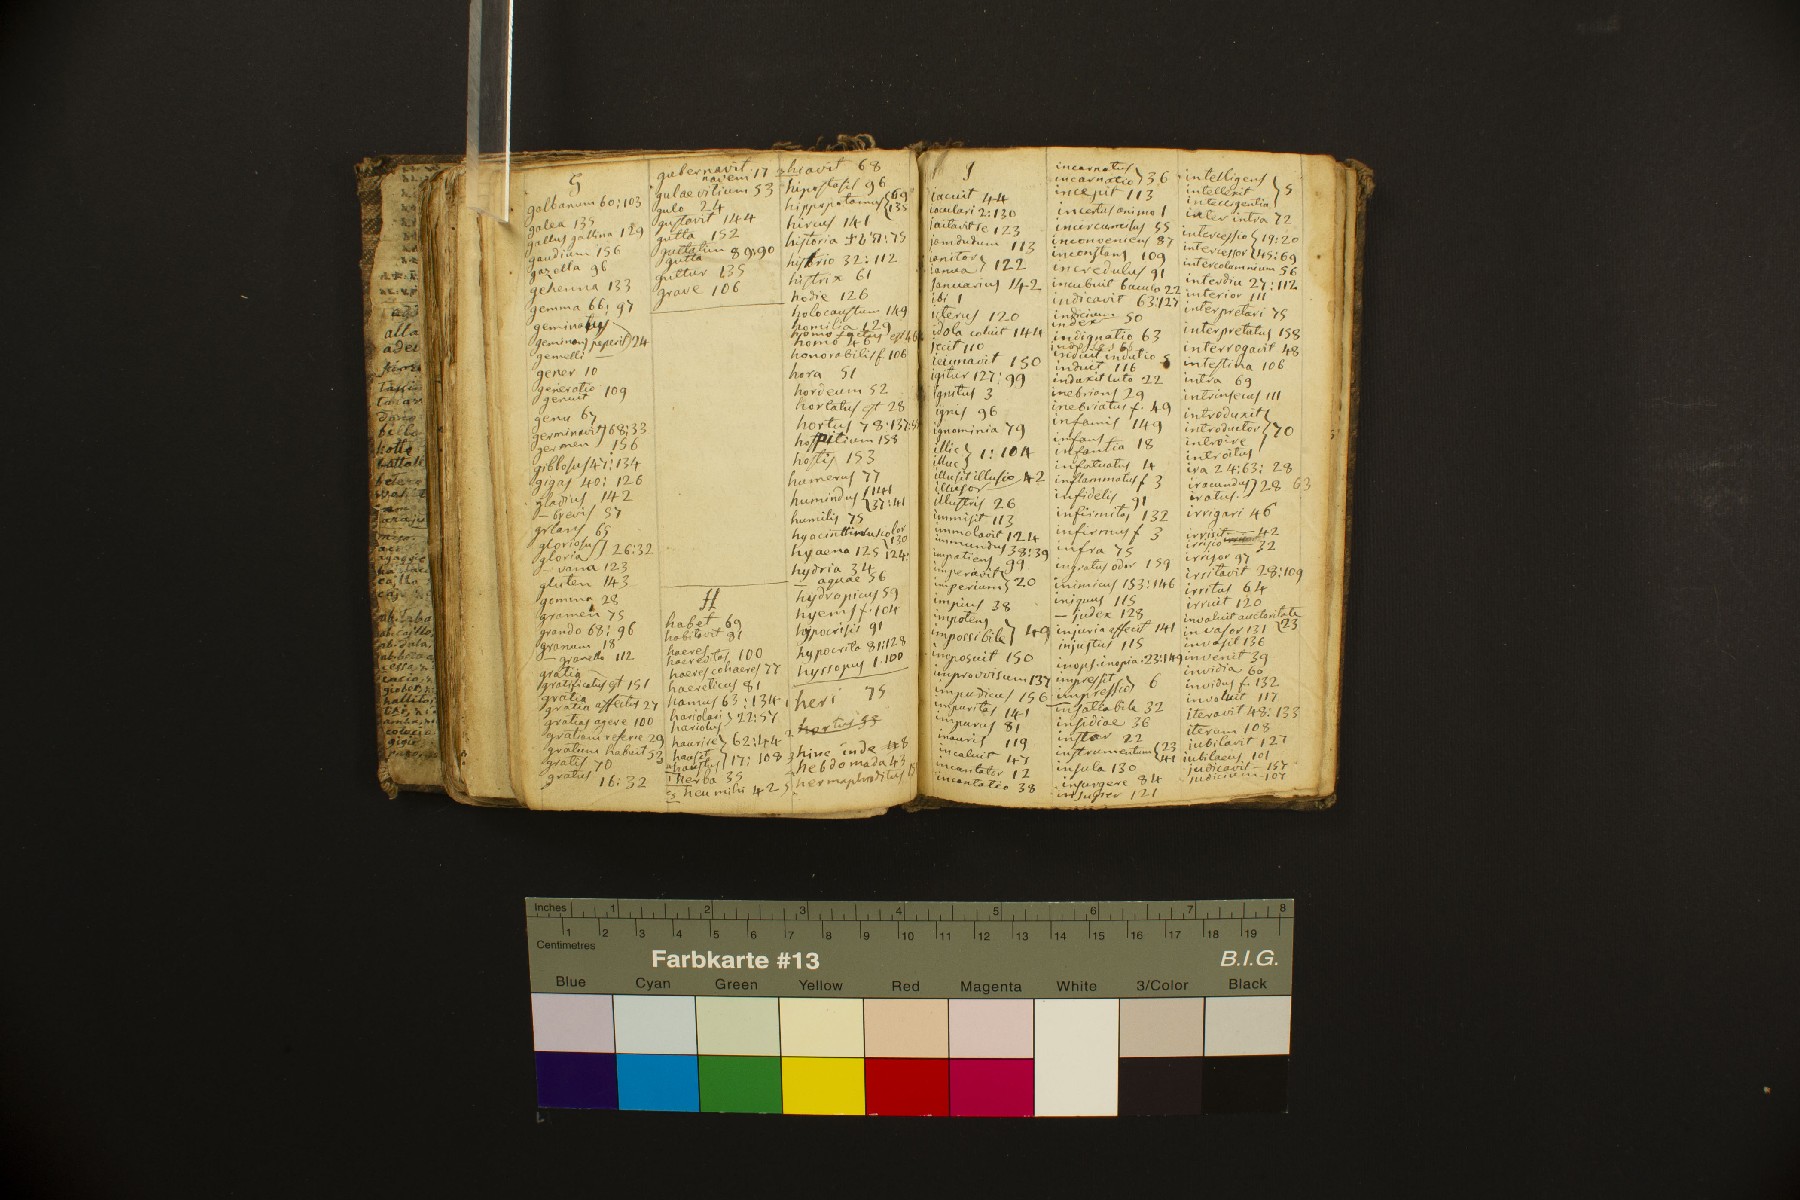 G
galbanum 60; 103
galea 135
gallus gallina 129
gaudium 156
gazella 96
gehenna 133
gemma 66; 97
geminatus
geminos peperit 24
gemelli
gener 10
generatio 109
genuit
genu 67
germinavit 68; 33
germen 156
gibbosus 47; 134
gigas 40; 126
gladius 142
— brevis 57
gloriosus
gloria 26:32
— vana 123
gluten 143
gemma 28
gramen 75
grando 68; 96
granum 18
— granella 112
gratia
gratificatus est 151
gratia
gratia affectus 27
gratias agere 100
gratiam referre 29
gratiam habuit 53
gratis 70
gratus 16:32
gubernavit
navem 17
gulae vitium 53
gulo 24
gustavit 144
gutta 152
guttatim 89; 90
gutta
guttur 135
grave 106
H
habet 69
habitavit 91
haeres
haereditas 100
haeres cohaeres 77
haereticus 81
hamus 63; 134
hariolari 22:57
hariolus
haurire 62:44
hausit
haustus 17; 108
herba 35
heu mihi 42
hiavit 68
hipostasis 96
hippopotamus 69
135
hircus 141
historia 51; 75
histrio 32; 112
histrix 61
hodie 126
holocaustum 149
homilia 129
homo factus est 46
homo 46
honorabilis f 106
hora 51
hordeum 52
hortatus est 28
hortus 78; 137
hospitium 158
hostis 153
humerus 77
humidus 141
37; 41
humilis 75
hyacinthinus color
130
hyaena 125 124
hydria 34
— aquae 56
hydropicus 59
hyems f. 104
hypocrisis 91
hypocrita 81:128
hyssopus 1:100
heri 75
hortus 33
hinc inde 48
hebdomada 43
hermaphroditus
J
iacuit 44
iaculari 2; 130
iactavit se 123
iamdudum 113
ianitor
ianua 122
Januarius 142
ibi 1
icterus 120
idola coluit 144
jecit 110
ieiunavit 150
igitur 127; 99
ignitus 3
ignis 96
ignominia 79
illic
illuc 1; 104
illusit illusio 42
illusor
illustris 26
immisit 113
immolavit 124
immundus 38:39
impatiens 99
imperavit
imperium 20
impius 38
impotens
impossibile 149
imposuit 150
improvisum 137
impudicus 156
impuritas 141
impurus 81
inauris 119
incaluit 47
incantator 12
incantatio 38
incarnatus
incarnatio 36
incepit 113
incertus animo 1
incircumcisus 55
inconveniens 87
inconstans 109
incredulus 91
incubuit baculo 22
indicavit 63:127
indicium
index 50
indignatio 63
induit indutio 5
induit 116
induxit luto 22
inebrians 29
inebriatus f. 49
infamis 149
infans
infantia 18
infatuatus 14
inflammatus f 3
infidelis 91
infirmitas 132
infirmus f 3
infra 75
ingratus odor 159
inimicus 153; 146
iniquus 115
— judex 128
injuria affecit 141
injustus 115
inops. inopia. 23:149
impressit
impressio 6
insatiabilis 32
insidiae 36
instar 22
instrumentum 23
41
insula 130
insurgere 84
insuper 121
intelligens
intellexit 5
intelligentia
inter intra 72
intercessio 19; 20
intercessor 45; 69
intercolumnium 56
interdiu 27; 112
interior 111
interpretari 75
interpretatus 158
interrogavit 48
intestina 106
intra 69
intrinsecus 111
introduxit
introductor 70
introire
introitus
ira 24:63; 28
iracundus 28 63
iratus
irrigari 46
irrisit 42
irrisio 32
irrisor 97
irritavit 28; 109
irritus 64
irruit 120
invaluit auctoritate
invasor 131 23
invasit 136
invenit 39
invidia 60
invidus f. 132
involuit 117
iteravit 48; 133
iterum 108
jubilavit 127
jubilaeus 101
judicavit 157
judicium 107
Inches 1 2 3 4 5 6 7 8
1 2 3 4 5 6 7 8 9 10 11 12 13 14 15 16 17 18 19
Centimetres
Farbkarte #13
B.I.G.
Blue Cyan Green Yellow Red Magenta White 3/Color Black